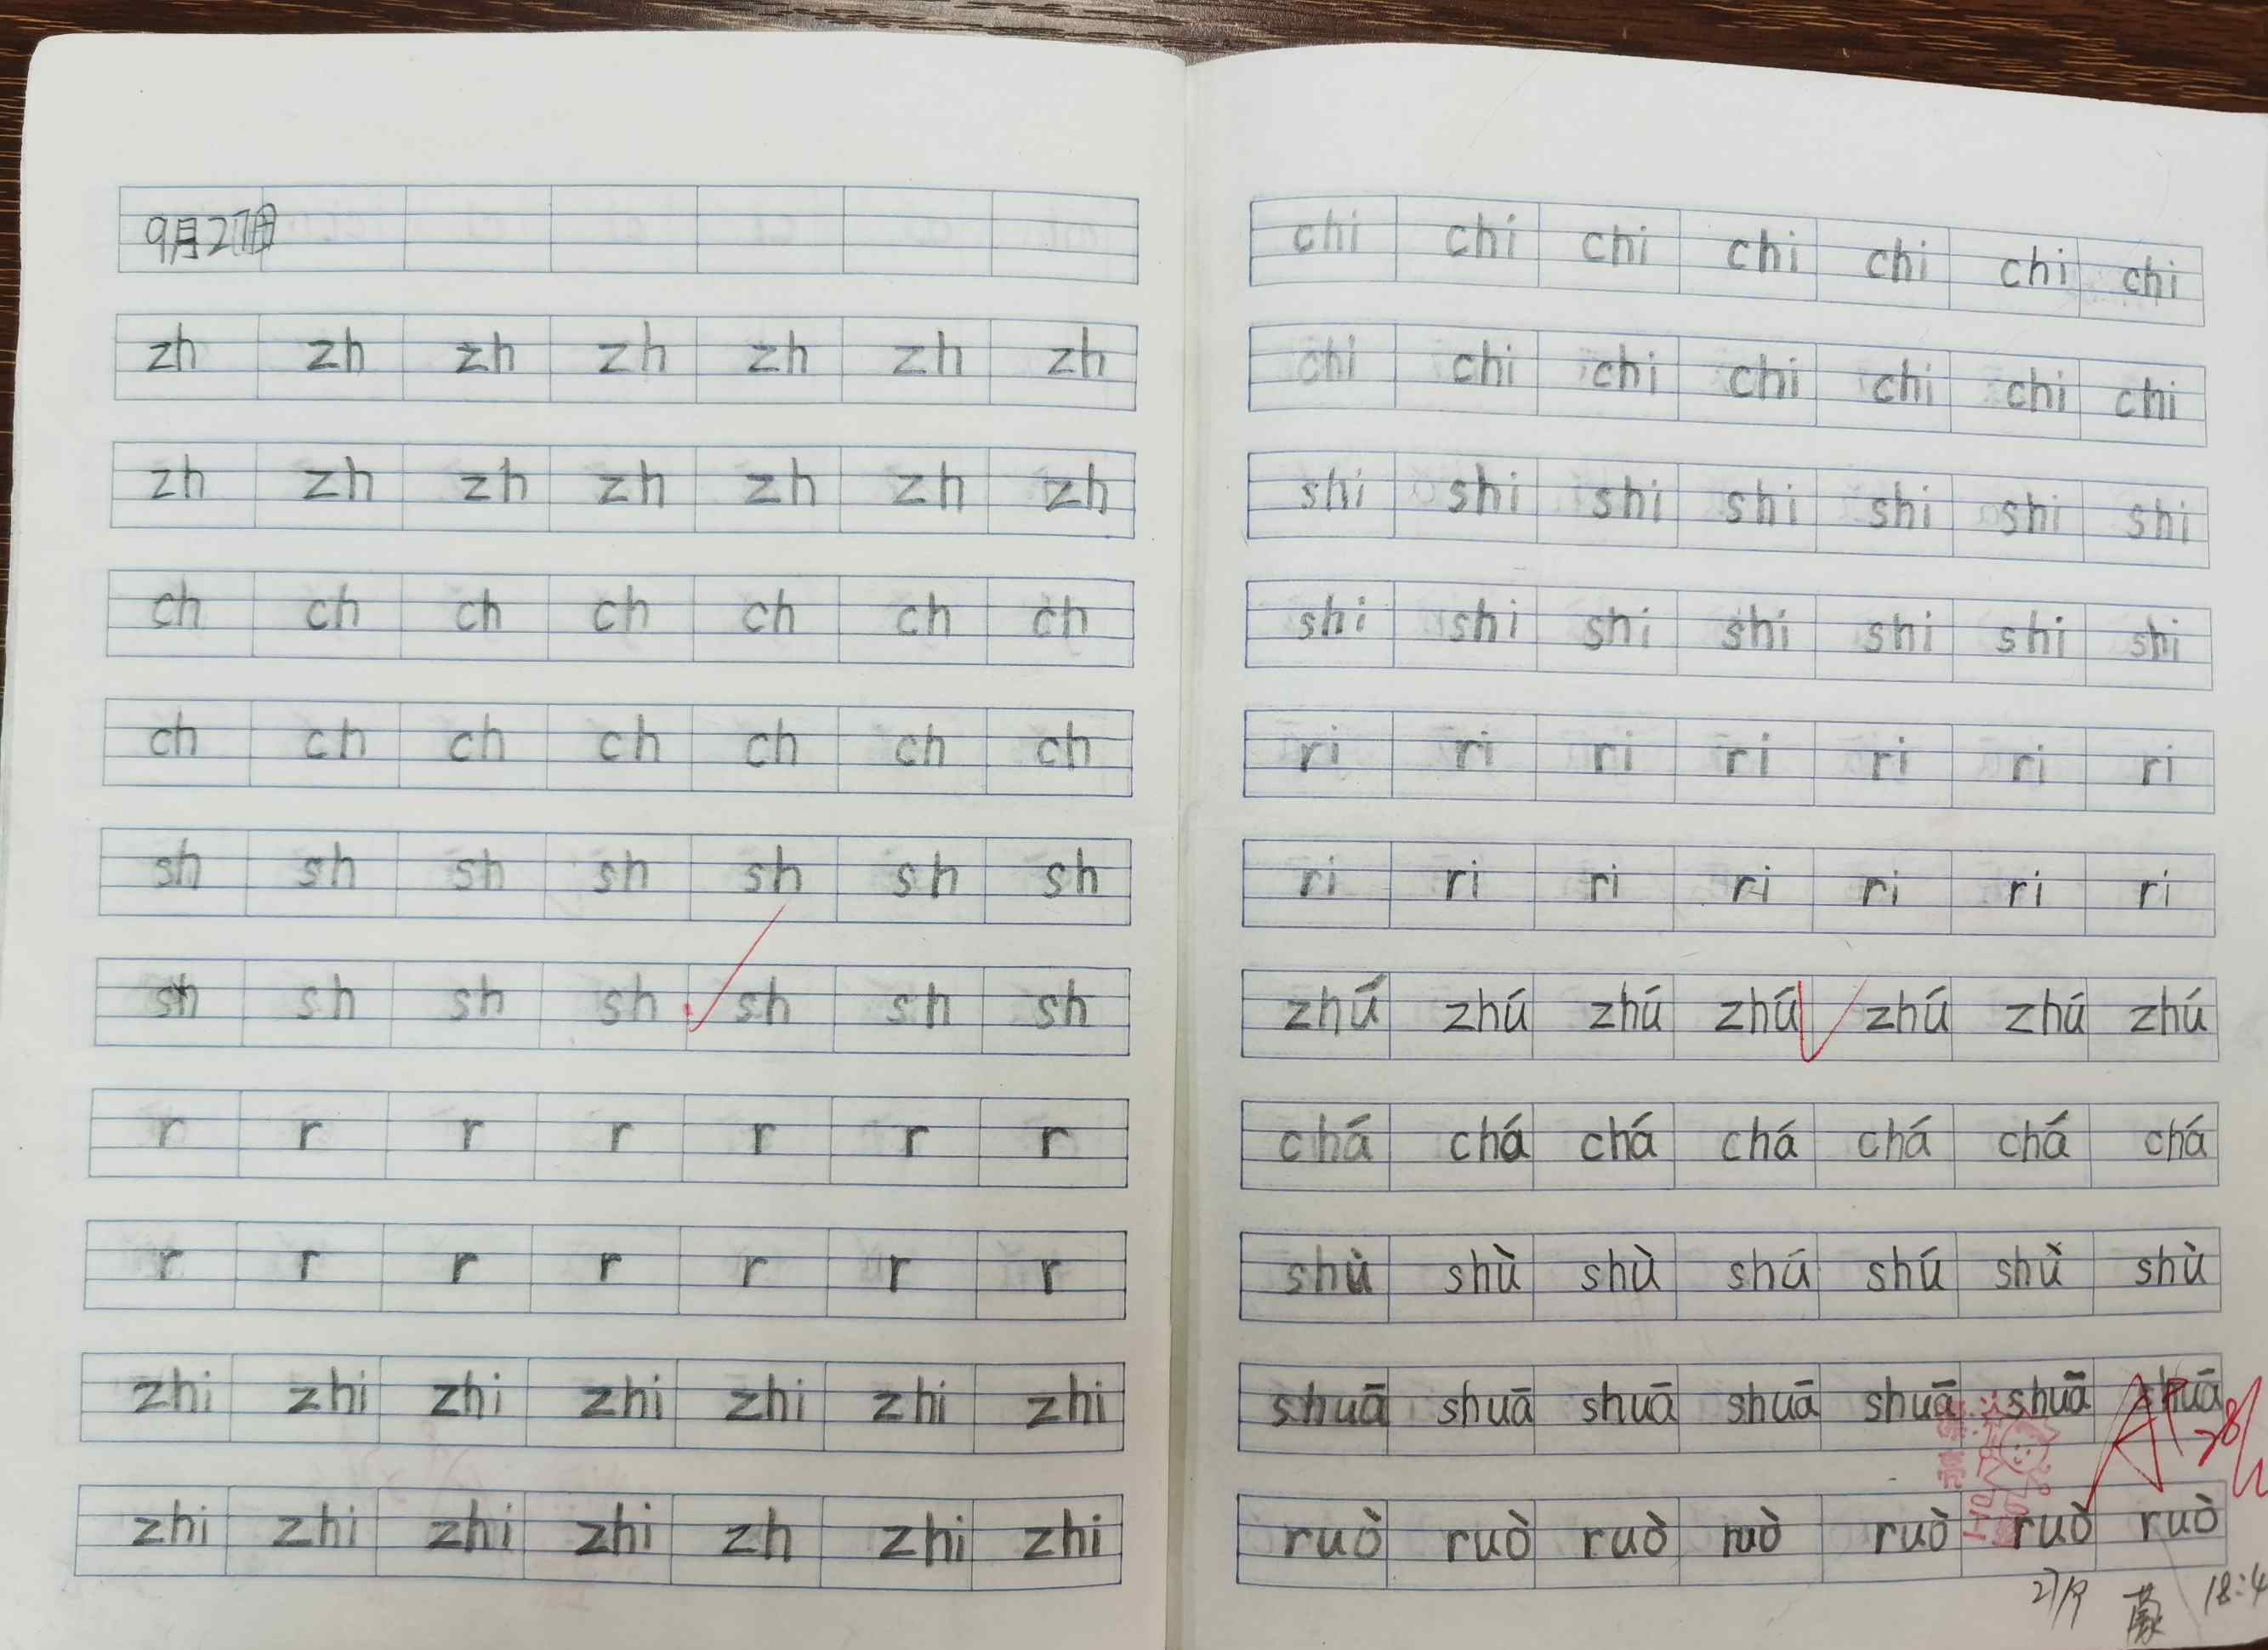 9月27日
zh zh zh zh zh zh zh
zh zh zh zh zh zh zh
ch ch ch ch ch ch ch
ch ch ch ch ch ch ch
sh sh sh sh sh sh sh
sh sh sh sh sh sh sh
r r r r r r r
r r r r r r r
zhi zhi zhi zhi zhi zhi zhi
zhi zhi zhi zhi zh zhi zhi
chi chi chi chi chi chi chi
chi chi chi chi chi chi chi
shi shi shi shi shi shi shi
shi shi shi shi shi shi shi
ri ri ri ri ri ri ri
ri ri ri ri ri ri ri
zhú zhú zhú zhú zhú zhú zhú
chá chá chá chá chá chá chá
shù shù shù shú shú shù shù
shuā shuā shuā shuā shuā shuā shuā
ruò ruò ruò ruò ruò ruò ruò
27/9 18:4